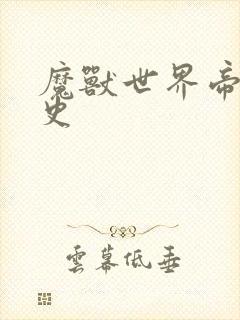 魔獸世界帝
史
雲幕低垂